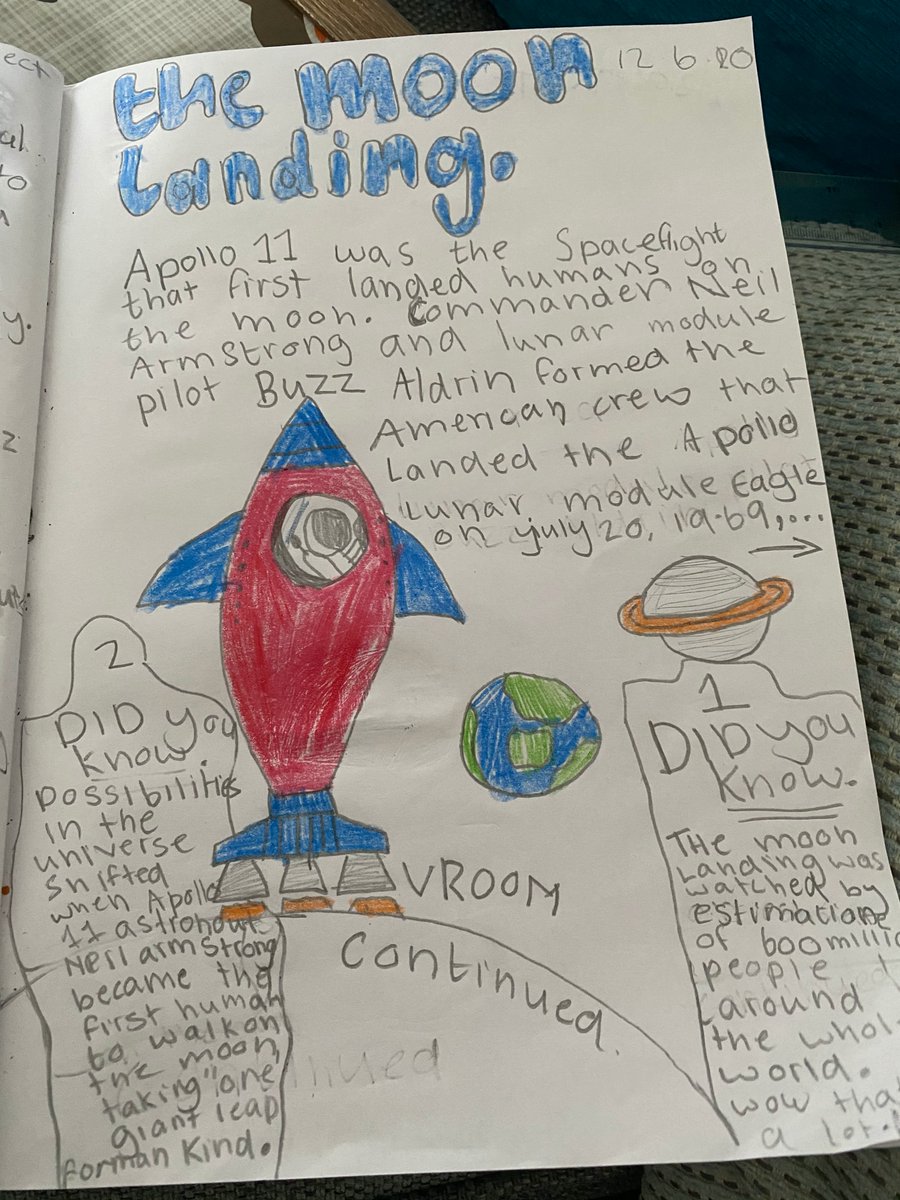 the moon
Landing.
12 6 20
Apollo 11 was the Spaceflight
that first landed humans on
the moon. Commander Neil
Armstrong and lunar module
pilot Buzz Aldrin formed the
American crew that
Landed the Apollo
Lunar module Eagle
on july 20, 19-69,....
2
DID you
know.
possibilities
in the
universe
shifted
when Apollo
11 astronout
Neil armstrong
became the
first human
to walk on
the moon,
taking "one
giant leap
forman kind.
VROOM
Continued.
1
DID you
know.
THe moon
Landing was
watched by
estimatione
of 600 millio
people
around
the whol
world.
wow tha
a lot.!
ect
to
y.
z